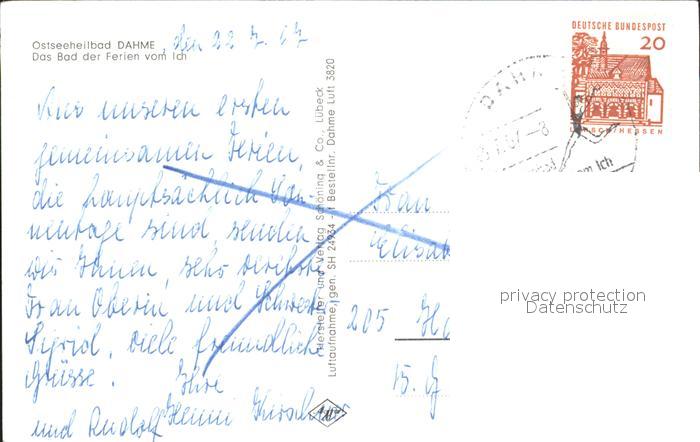 Ostseeheilbad DAHME, den 22.7.67
Das Bad der Ferien vom Ich
Aus unseren ersten
gemeinsamen Ferien,
die hauptsächlich Son-
nentage sind, senden
wir Ihnen, sehr verehrte
Frau Oberin und Schwester
Sigrid, viele freundliche
Grüsse. Ihre
Henni Kirschner
und Rudolf
Hersteller und Verlag Schöning & Co., Lübeck
Luftaufnahme, gen. SH 24934 - f Bestellnr. Dahme Luft 3820
DEUTSCHE BUNDESPOST
20
LORSCH/HESSEN
DAHM
67-8
m Ich
Frau
Elisab
205 Ha
15. G
privacy protection
Datenschutz